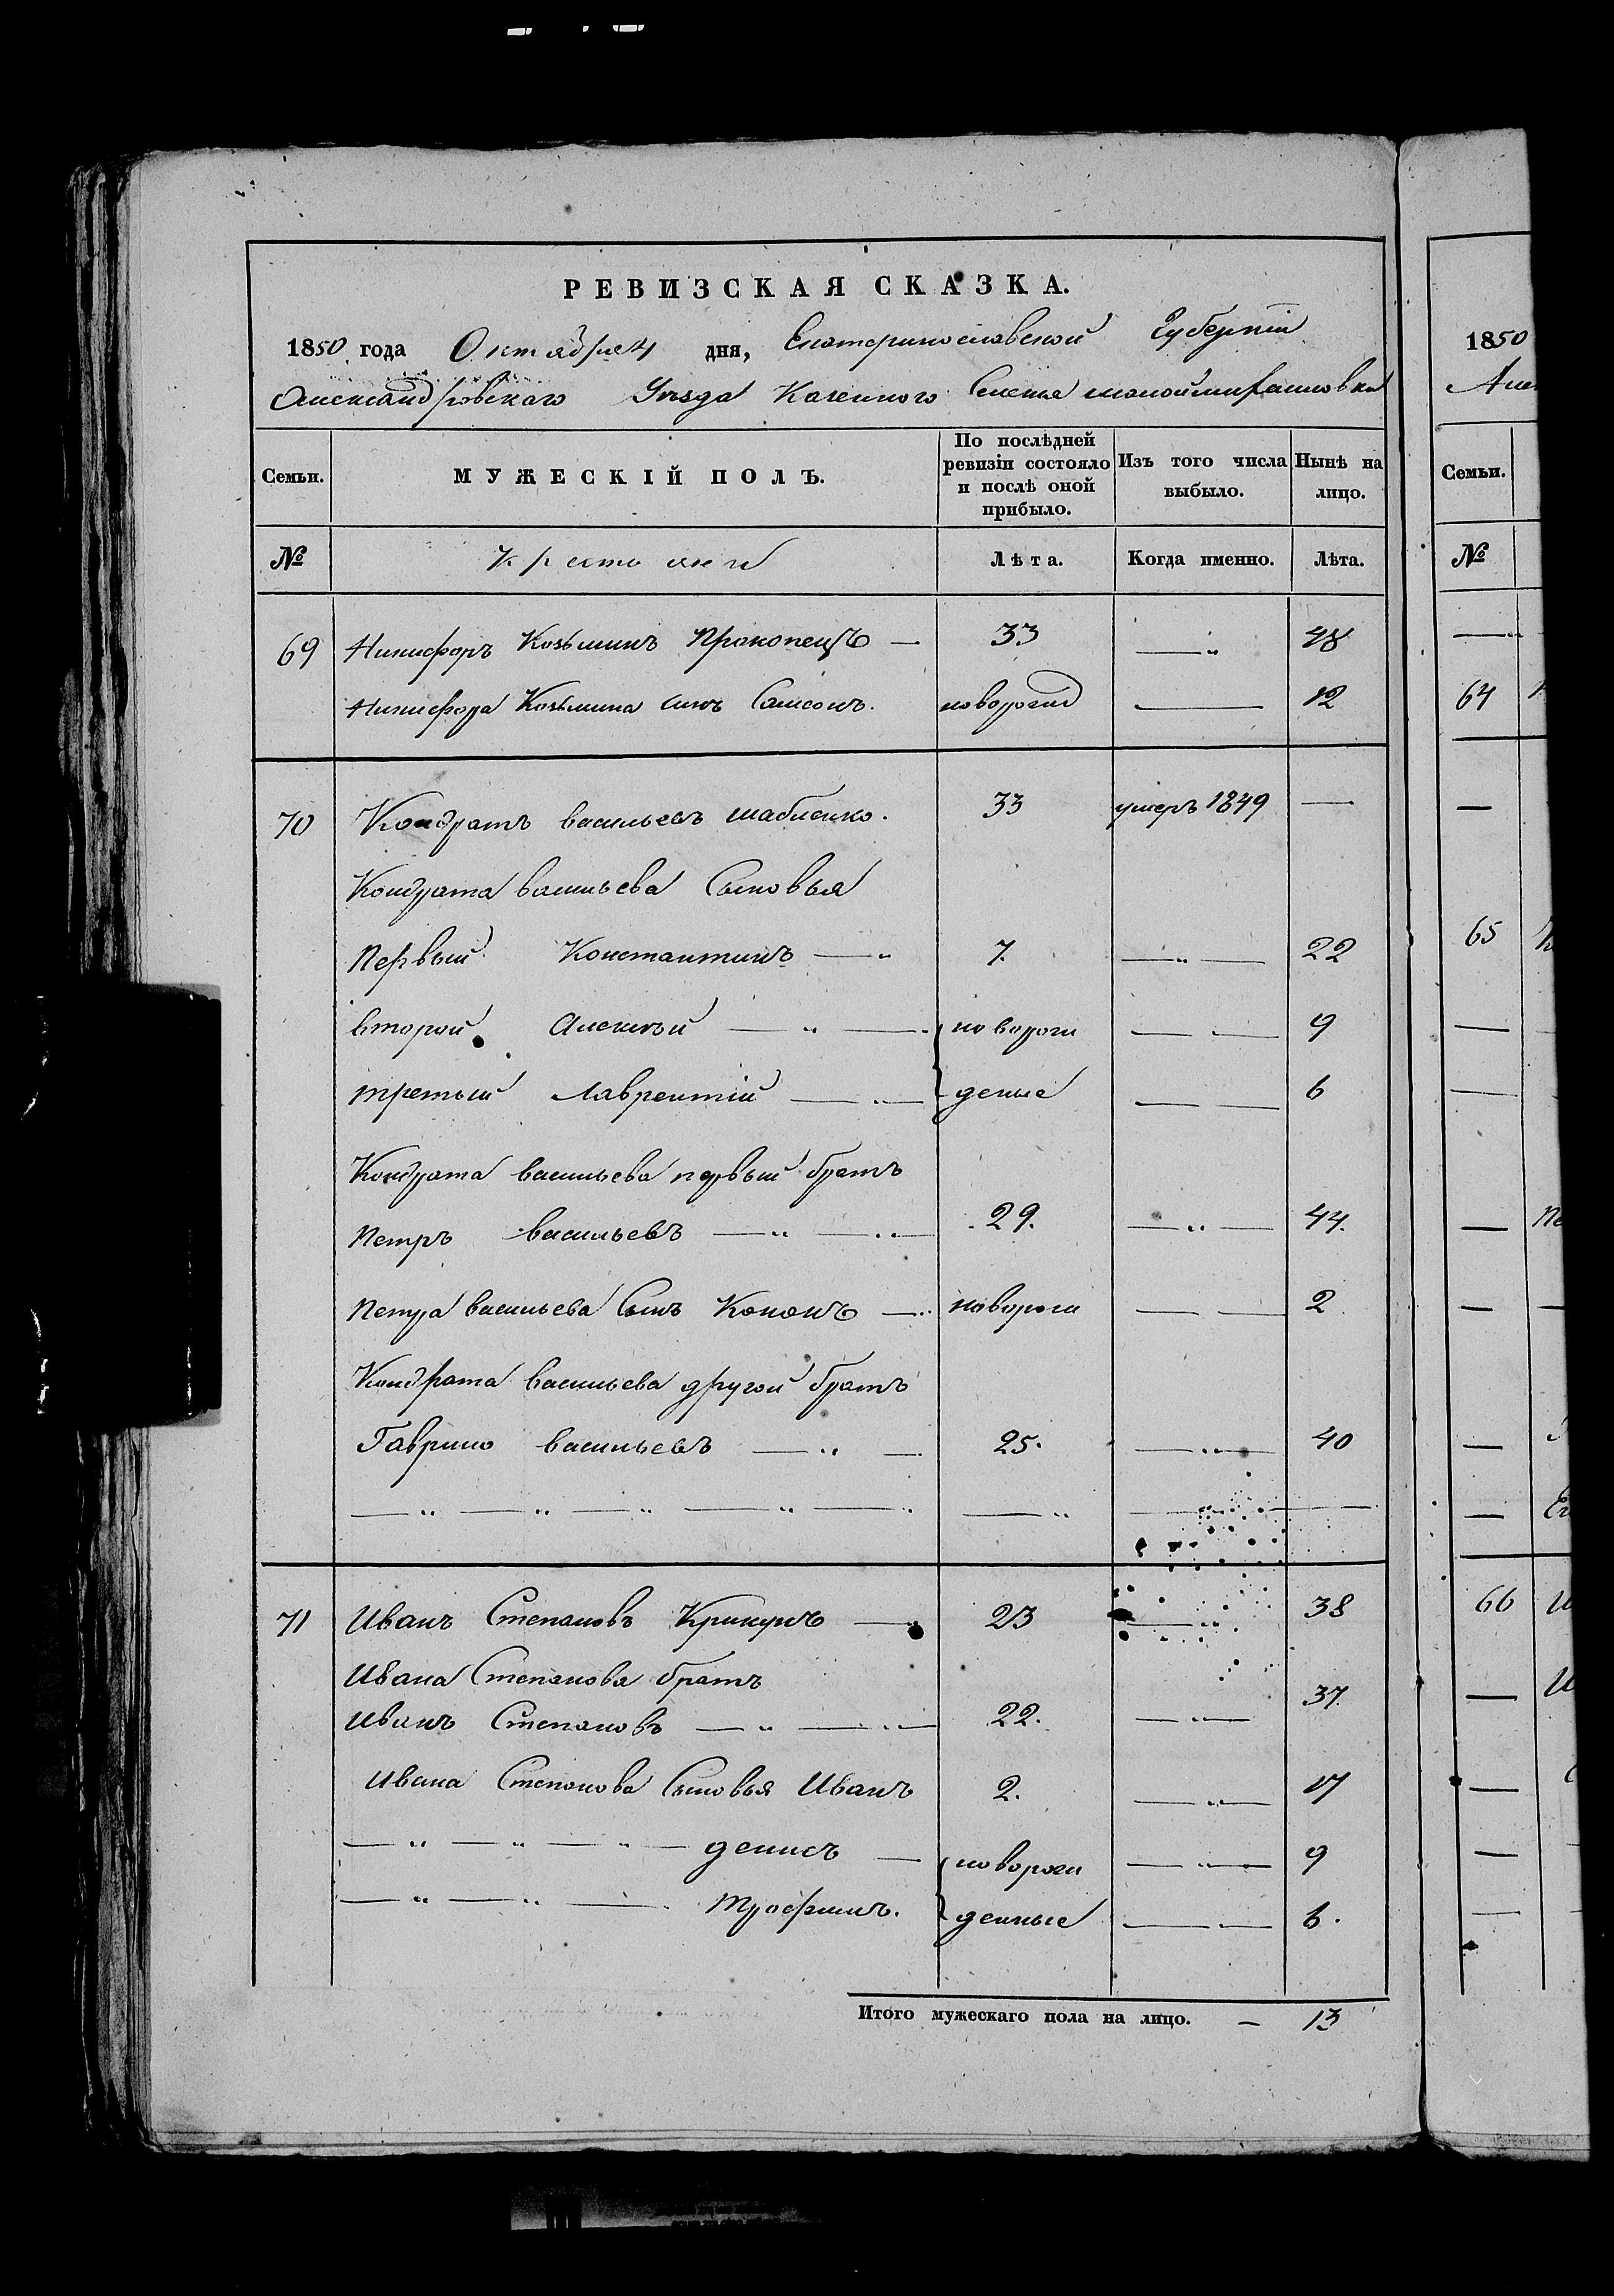 РЕВИЗСКАЯ СКАЗКА.
1850 года Октября 4 дня, Екатеринославской Губерніи
Александровскаго Уѣзда Казенного Селенія
Семьи. МУЖЕСКІЙ ПОЛЪ. По послѣдней ревизіи состояло и послѣ оной прибыло. Изъ того числа выбыло. Нынѣ на лицо.
№ Крестьяни Лѣта. Когда именно. Лѣта.
69 Никифоръ Козьминъ Прокопецъ — 33 —„ 48
Никифора Козьмина сынъ Самсонъ. новорогид — 12
70 Кондратъ васильевъ шабленко. 33 умеръ 1849 —
Кондрата васильева Сыновья
Первый Константинъ —„ 7. —„— 22
второй Алексѣй —„— новорож — — 9
третьий Лаврентій —„— деные — — 6
Кондрата васильева первый братъ
Петръ васильевъ —„—„— 29. —„— 44.
Петра васильева Сынъ Кононъ —„ новорож — — 2
Кондрата васильева другой братъ
Гаврило васильевъ —„— 25. —„— 40
—„—„—„—„—„ —„ — —
71 Иванъ Степановъ Крикунъ — 23 —„ 38
Ивана Степанова братъ
Иванъ Степановъ —„—„— 22. —„— 37.
Ивана Степанова Сыновья Иванъ 2. —„— 17
—„—„—„— денисъ — новорож —„— 9
—„—„— Трофимъ. денные — — 6.
Итого мужескаго пола на лицо. — 13
1850
Семьи.
№
64
65
66